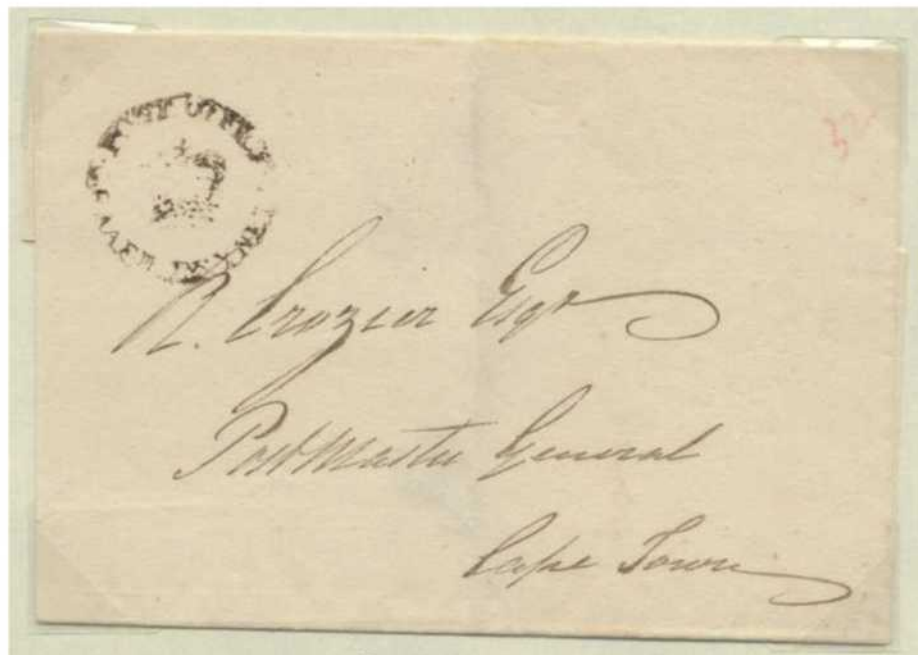 POST OFFICE
R. Crozier Esqr
PostMaster General
Cape Town
32